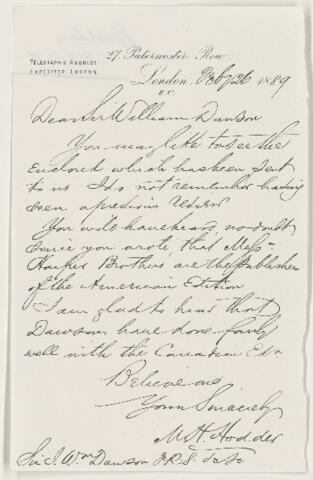 27, Paternoster Row,
TELEGRAPHIC ADDRESS:
EXPOSITOR LONDON.
London, Feby 26 1889
E.C.
Dear Sir William Dawson
You may like to see the
Enclosed which has been sent
to us I do not remember having
seen a previous Return
You will have heard, no doubt
since you wrote, that Messrs
Harper Brothers are the publishers
of the American Edition
I am glad to hear that
Dawsons have done fairly
well with the Canadian Edn
Believe me
Yours Sincerely
M H Hodder
Sir J. Wm Dawson F.R.S. &c &c